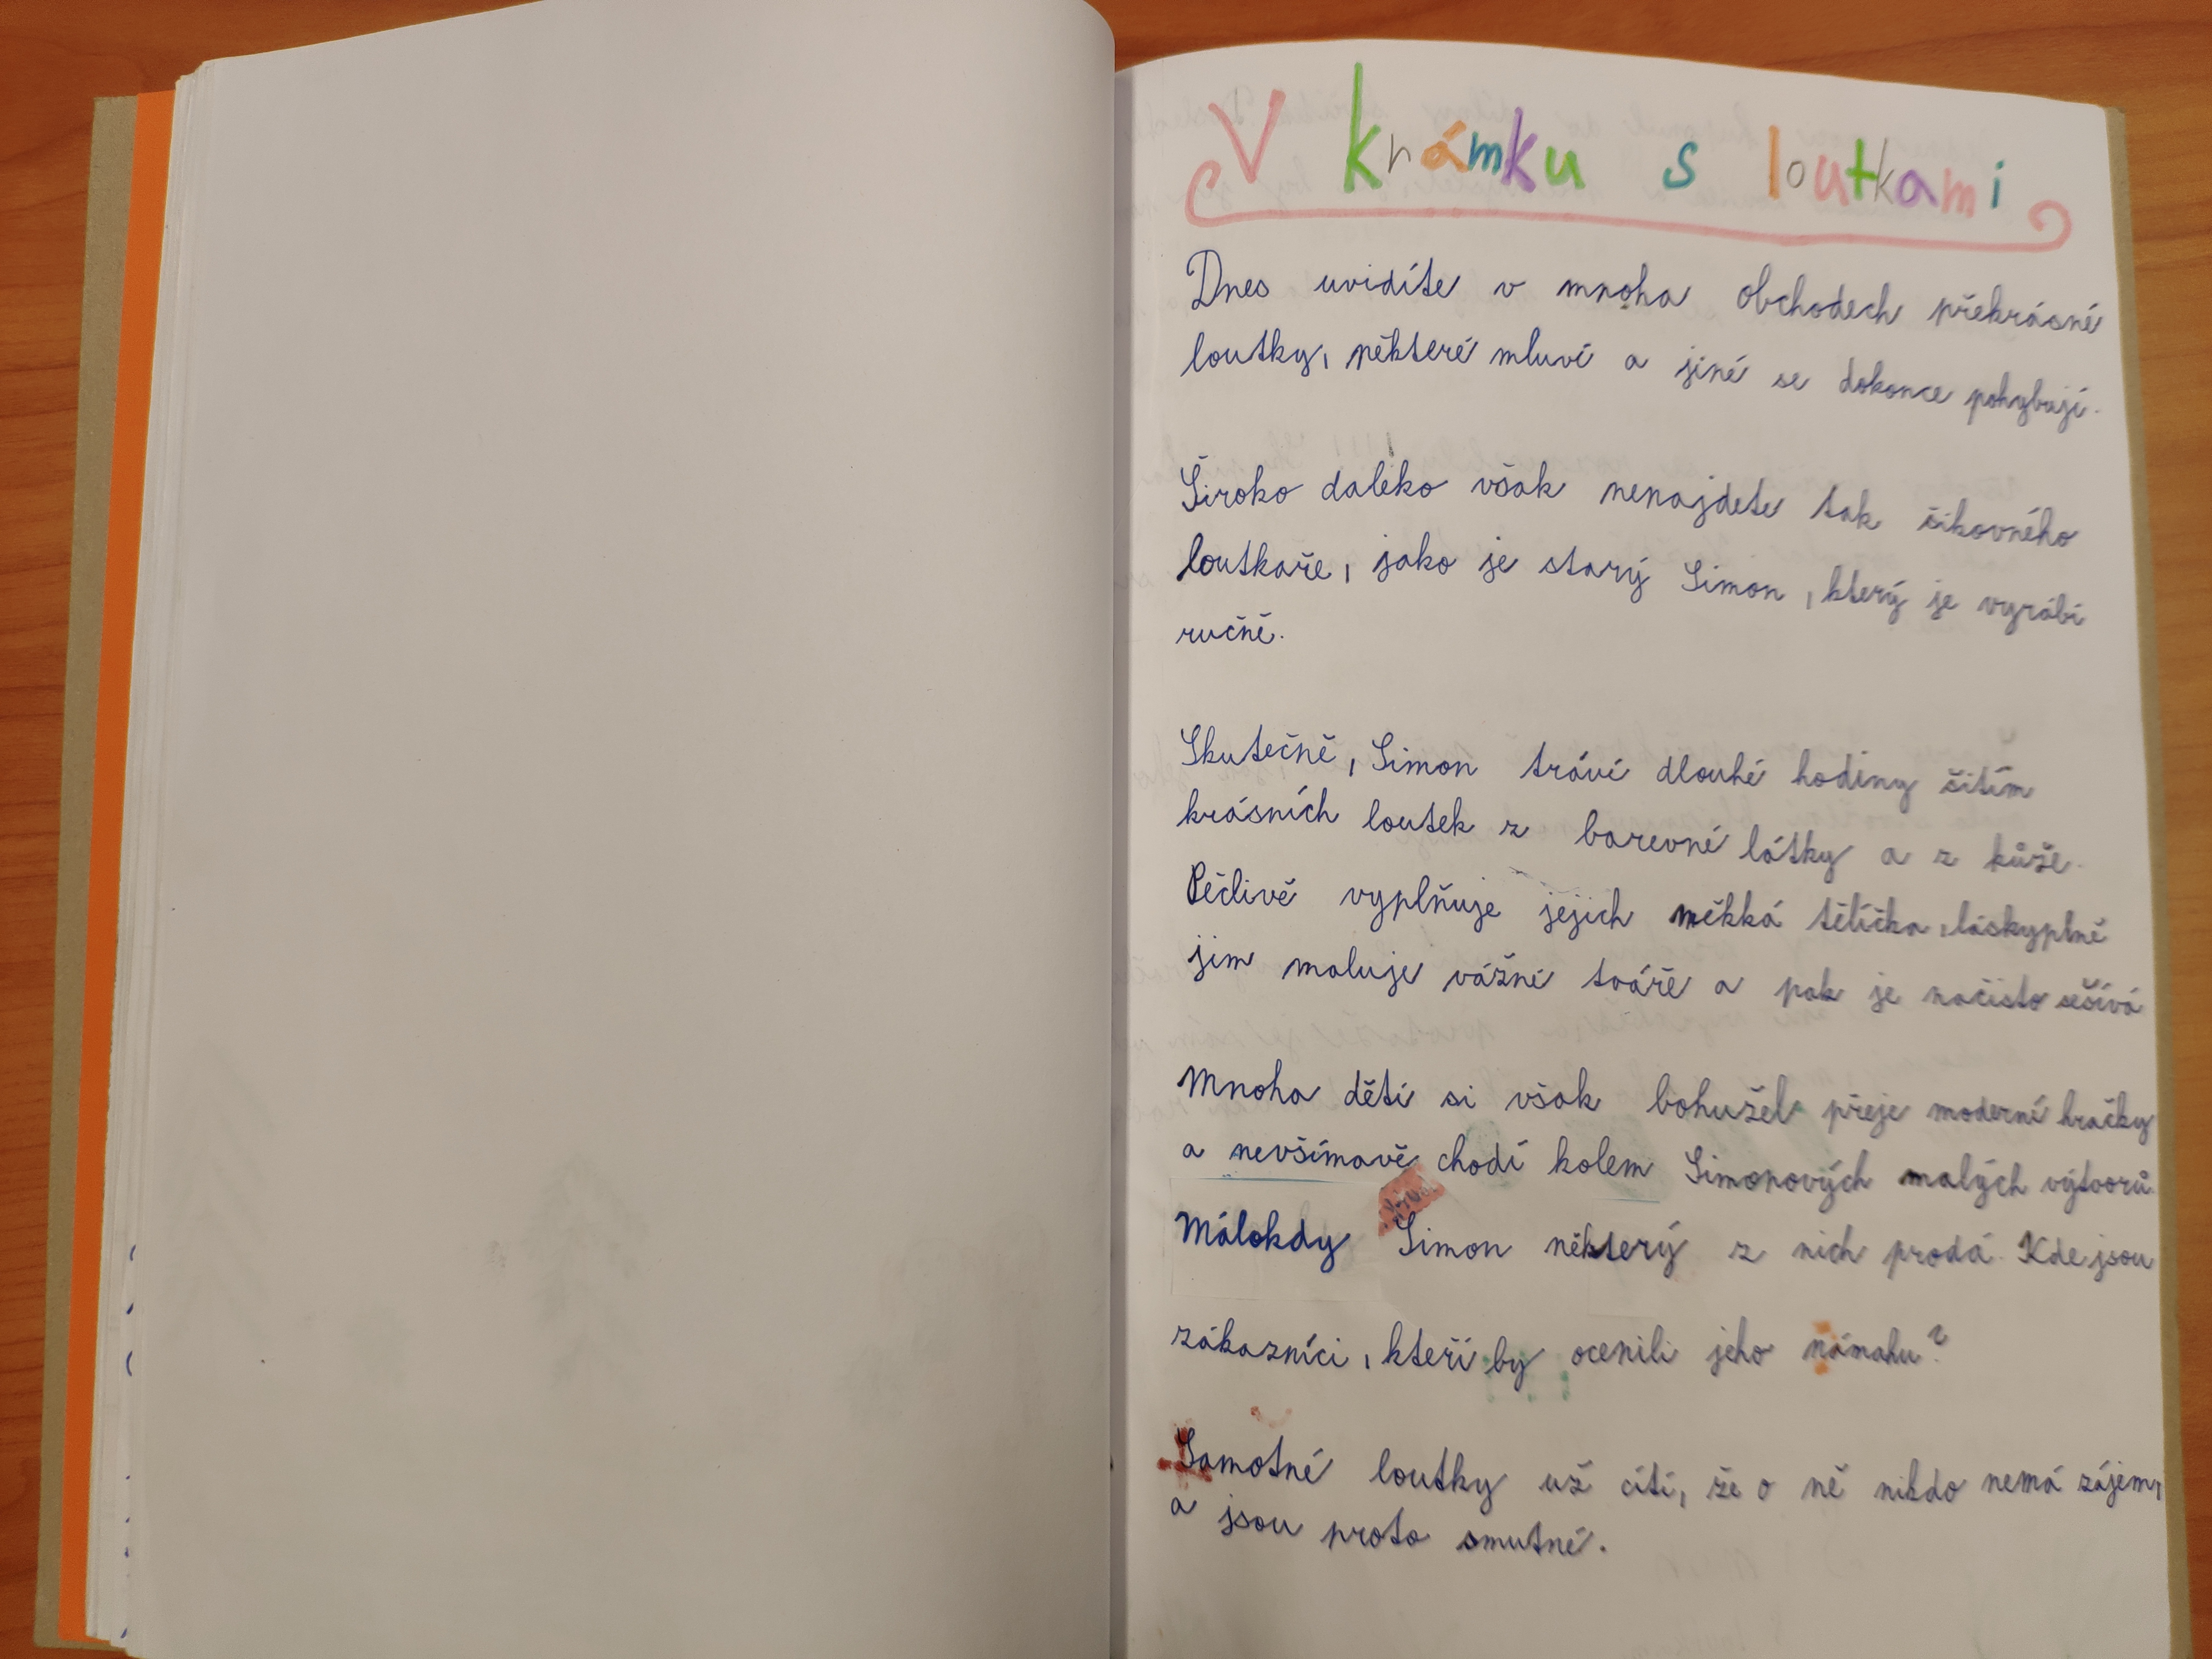 V krámku s loutkami
Dnes uvidíte v mnoha obchodech překrásné
loutky, některé mluví a jiné se dokonce pohybují.
Široko daleko však nenajdete tak šikovného
loutkaře, jako je starý Simon, který je vyrábí
ručně.
Skutečně, Simon tráví dlouhé hodiny šitím
krásních loutek z barevné látky a z kůže.
Pečlivě vyplňuje jejich měkká tělíčka, láskyplně
jim maluje vážné tváře a pak je načisto sešívá
Mnoha dětí si však bohužel přeje moderní hračky
a nevšímavě chodí kolem Simonových malých výtvorů.
Málokdy Simon některý z nich prodá. Kde jsou
zákazníci, kteří by ocenili jeho námahu?
Samotné loutky už cítí, že o ně nikdo nemá zájem,
a jsou proto smutné.